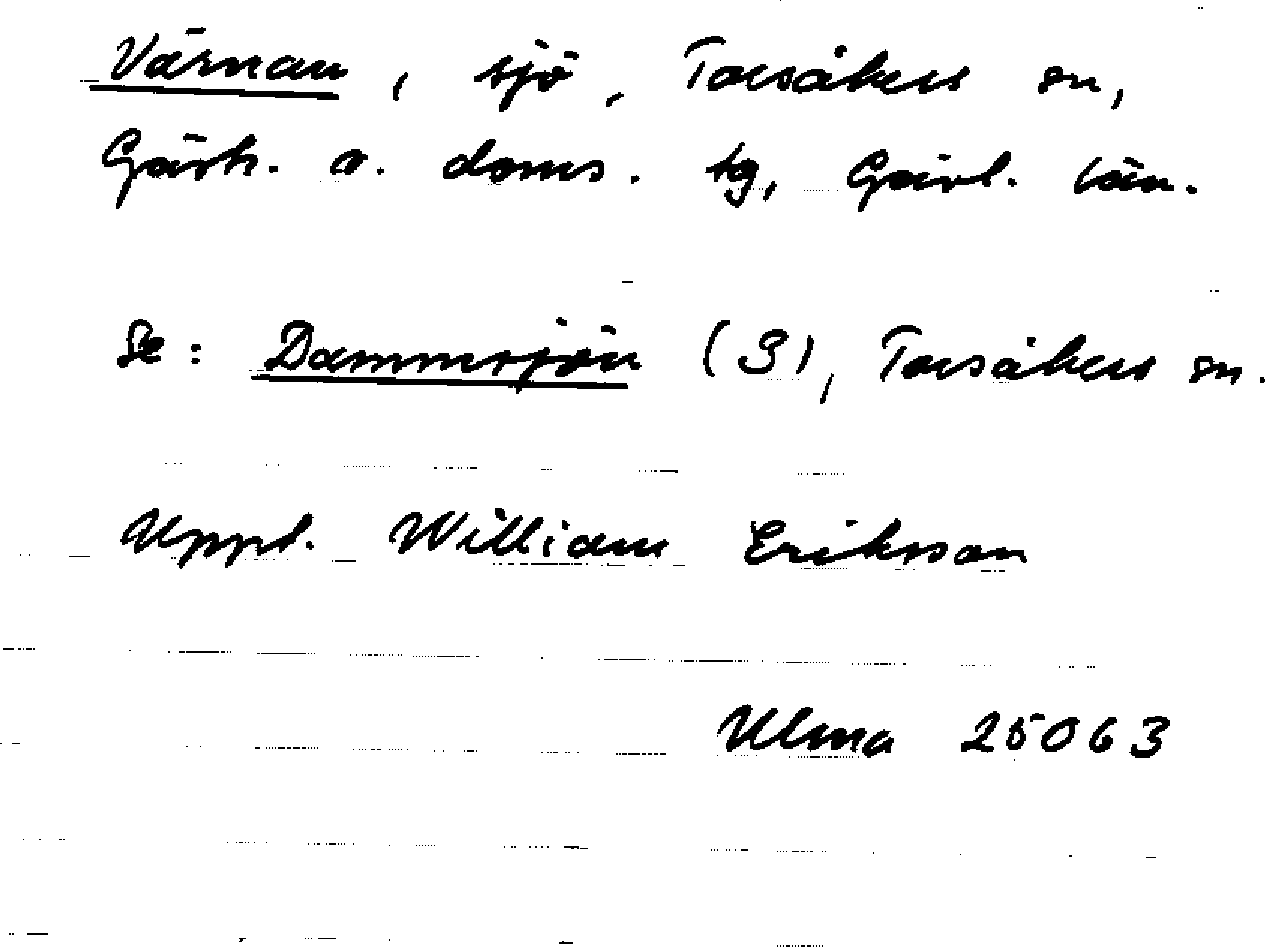 Värnan, sjö, Torsåkers sn,
Gästr. ö. doms. tg, Gävl. län.
Se: Dammsjön (S), Torsåkers sn.
Uppt. William Eriksson
Ulma 25063